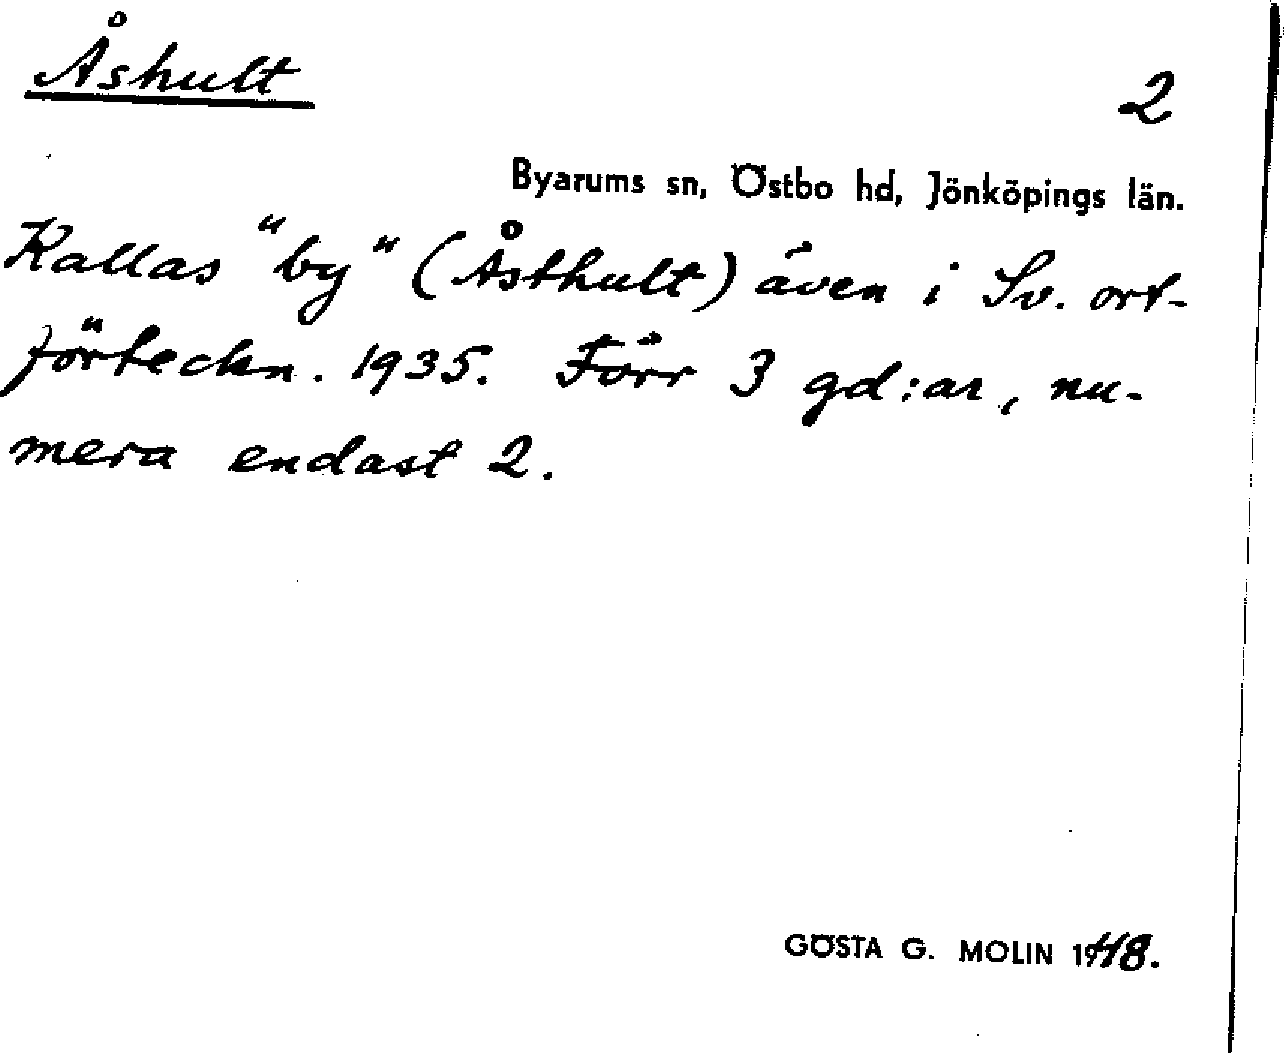 Åshult
2
Byarums sn, Östbo hd, Jönköpings län.
Kallas "by" (Åsthult) även i Sv. ort-
förteckn. 1935. Förr 3 gd:ar, nu-
mera endast 2.
GÖSTA G. MOLIN 1948.